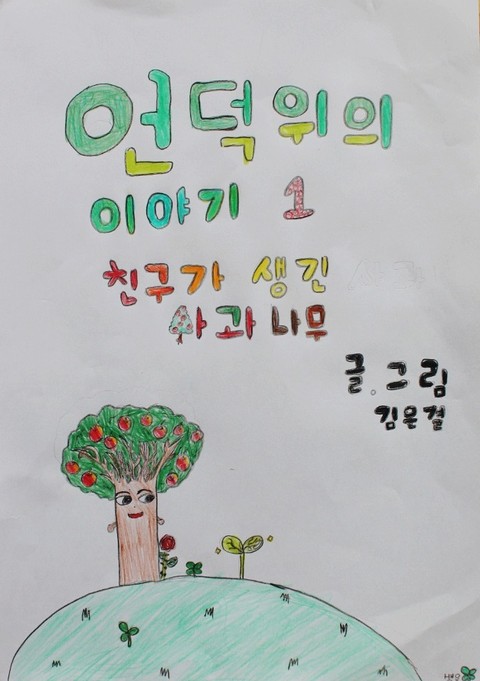 언덕위의
이야기 1
친구가 생긴
사과나무
글.그림
김은결